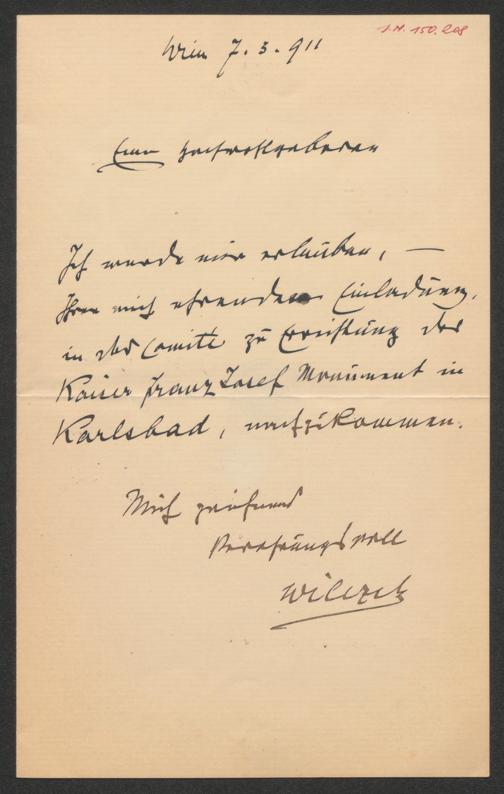 J.N. 150.208
Wien 7. 3. 911
Euer Hochwohlgeboren
Ich werde mir erlauben, —
Ihrer mich ehrenden Einladung,
in das Comité zu Errichtung des
Kaiser Franz Josef Monument in
Karlsbad, nachzukommen.
Mich zeichnend
Verehrungsvoll
Wilczek